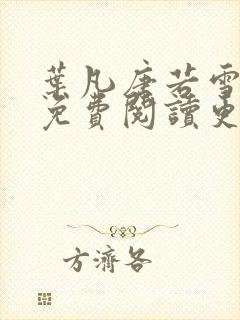 葉凡唐若雪
免費閱讀更
方濟各